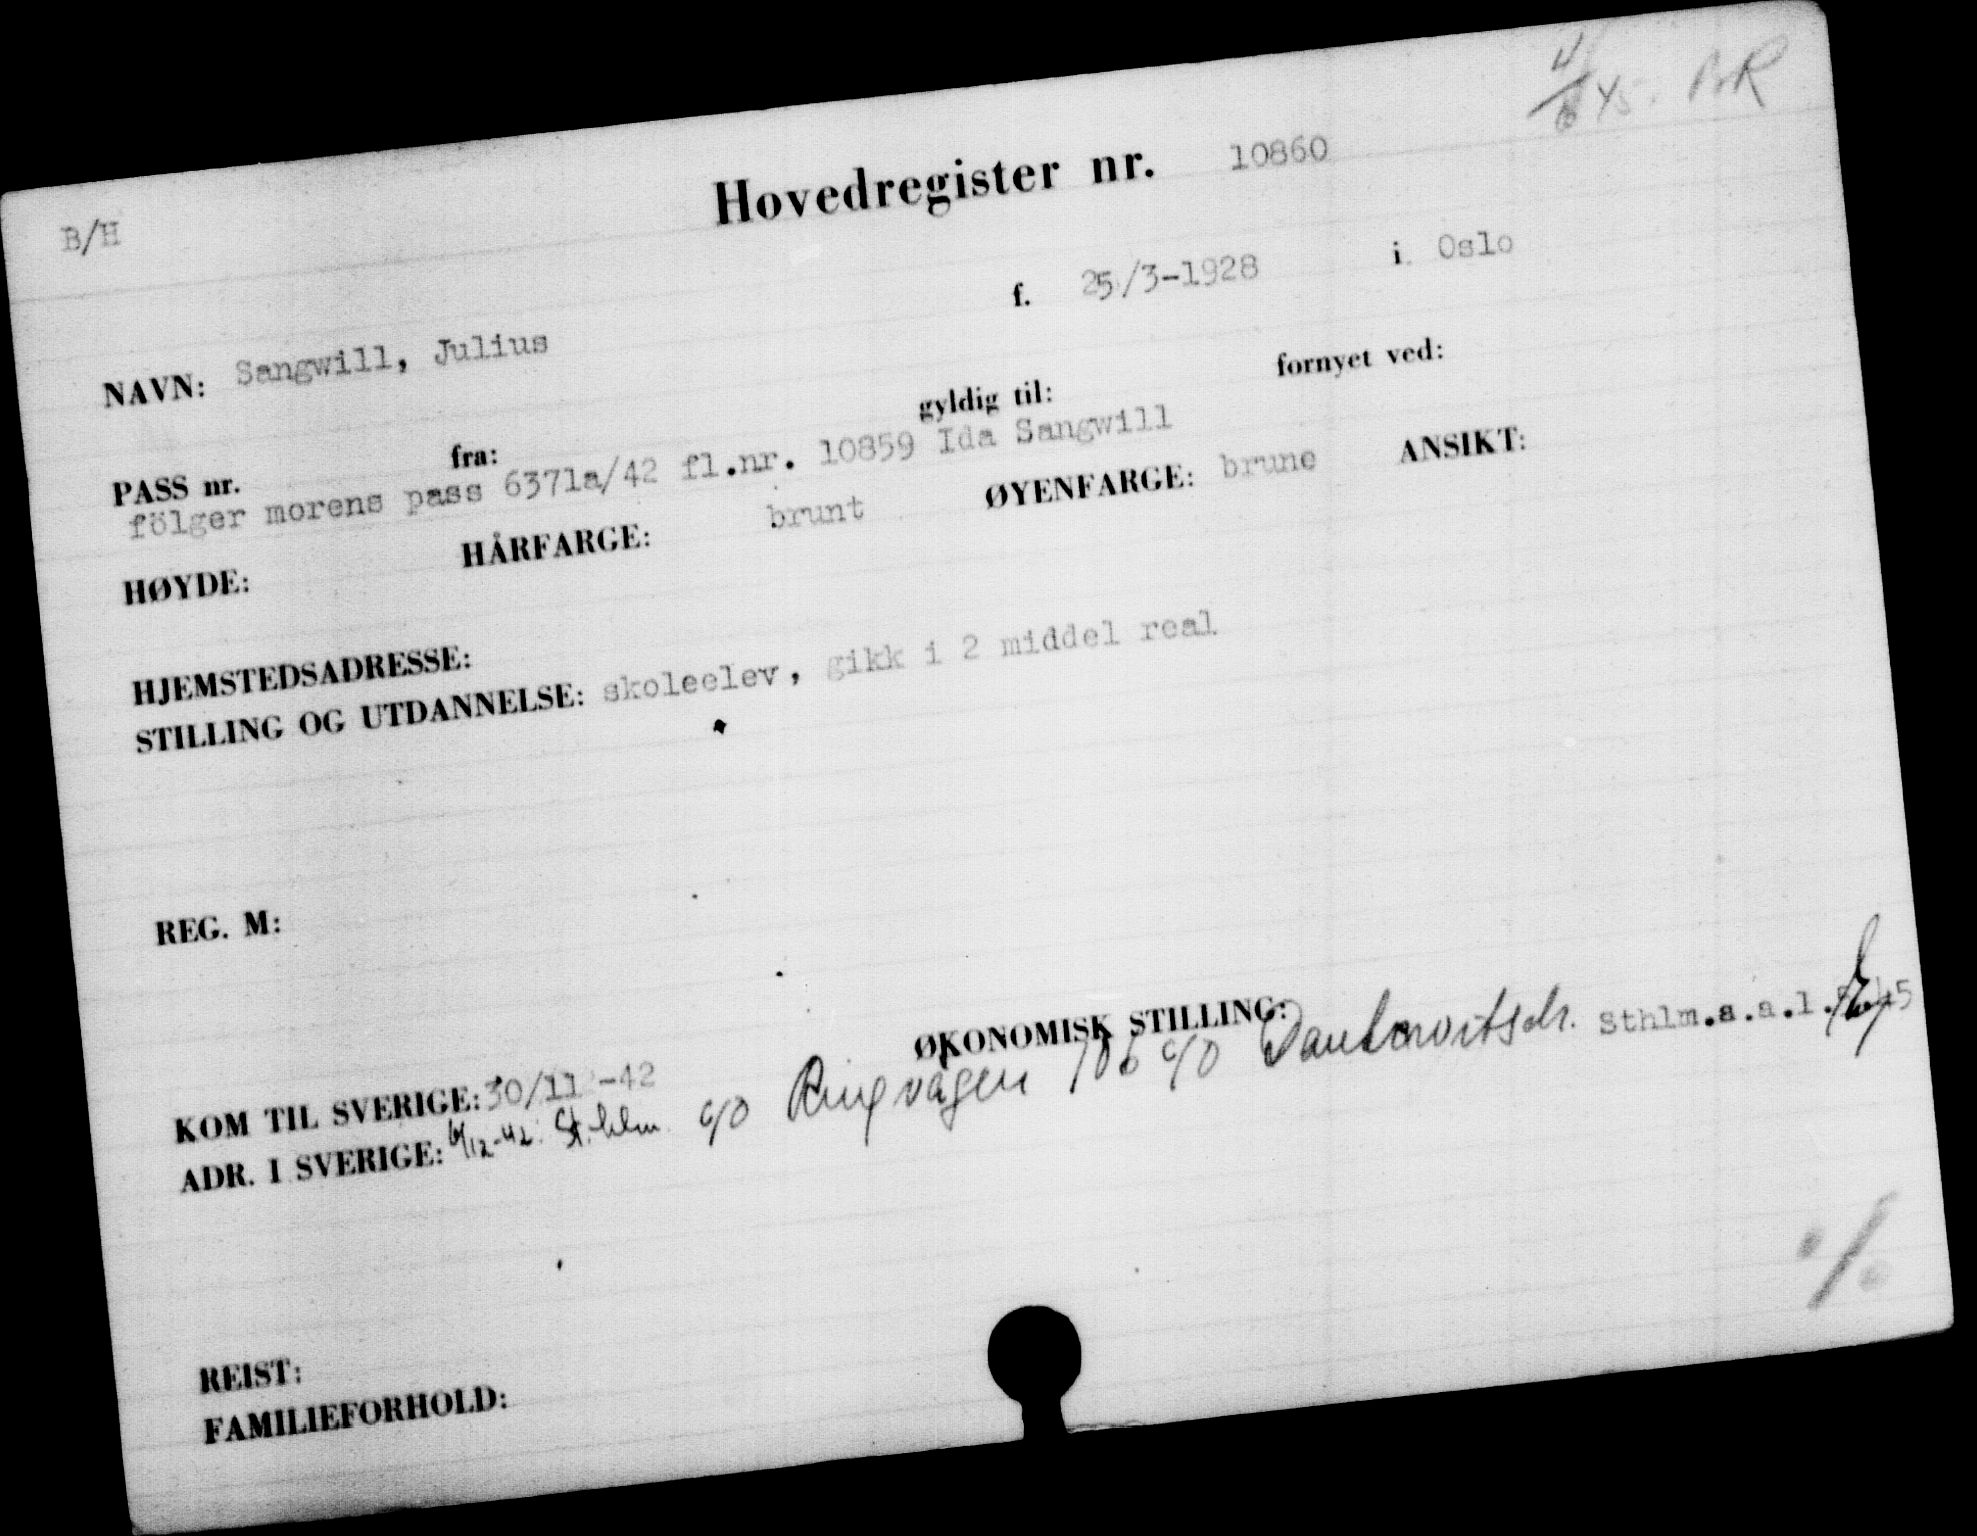 4/6 45. 
B/H Hovedregister nr. 10860
NAVN: Sangwill, Julius f. 25/3-1928 i Oslo
PASS nr. fra: gyldig til: fornyet ved:
fölger morens pass 6371a/42 fl.nr. 10859 Ida Sangwill
HØYDE: HÅRFARGE: brunt ØYENFARGE: brune ANSIKT:
HJEMSTEDSADRESSE:
STILLING OG UTDANNELSE: skoleelev, gikk i 2 middel real
REG. M:
KOM TIL SVERIGE: 30/11-42 ØKONOMISK STILLING:
ADR. I SVERIGE: 6/12-42. St.hlm c/o Ringvägen 106 c/o Sthlm.a.a.l.
REIST:
FAMILIEFORHOLD: